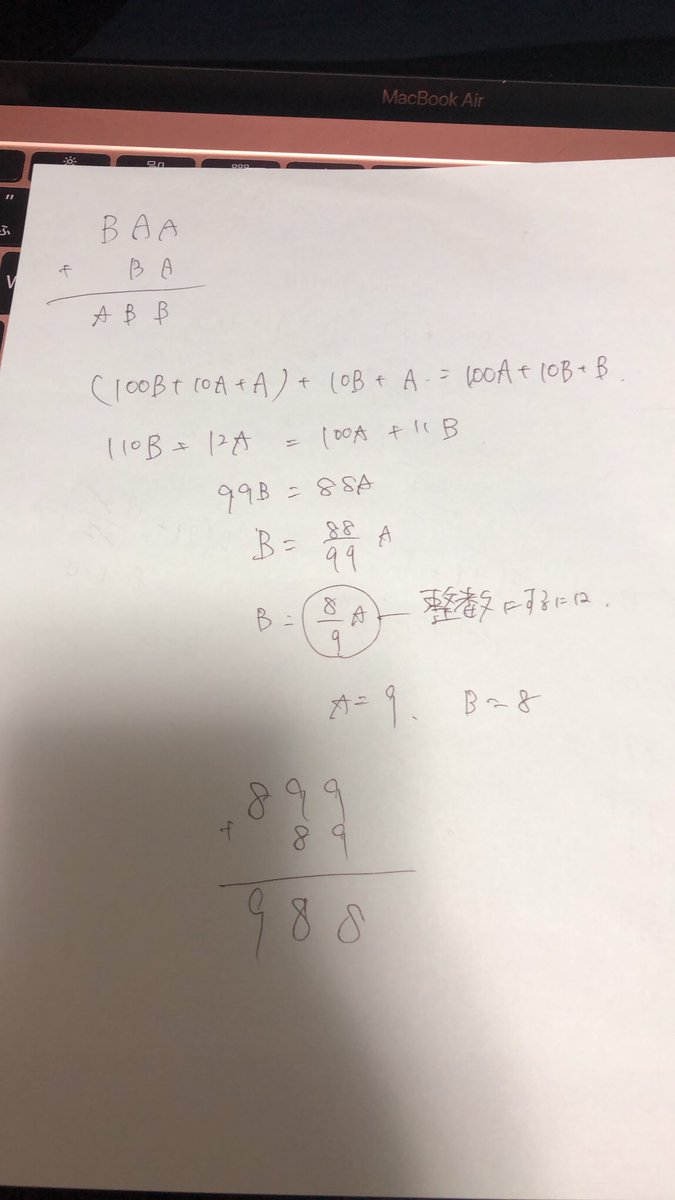 MacBook Air
B A A
+ B A
A B B
(100B + 10A + A) + 10B + A = 100A + 10B + B.
110B = 12A = 100A + 11B
99B = 88A
B = 88/99 A
B = 8/9 A — 整数にするには.
A = 9. B = 8
8 9 9
+ 8 9
9 8 8